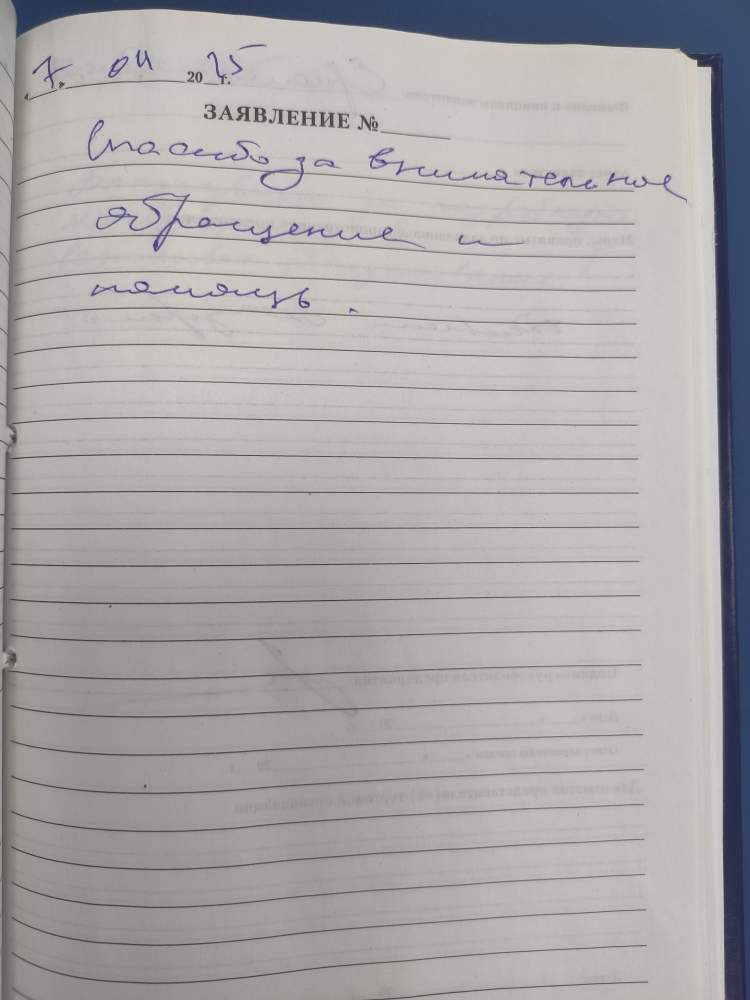 « 7 » 04 2025 г.
ЗАЯВЛЕНИЕ № ______
Спасибо за внимательное
обращение и
помощь.